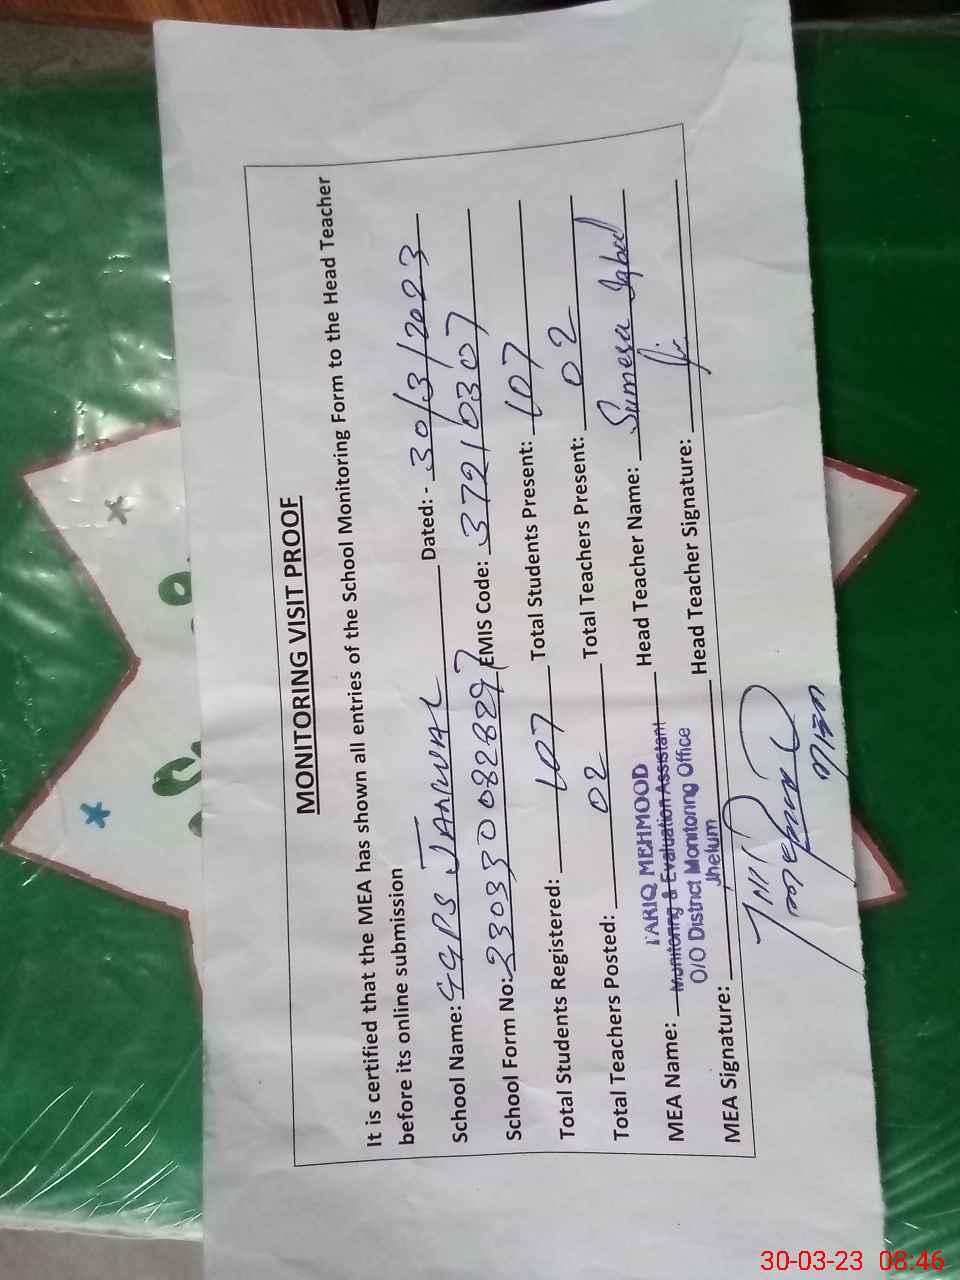 MONITORING VISIT PROOF
It is certified that the MEA has shown all entries of the School Monitoring Form to the Head Teacher
before its online submission
School Name: GGPS JANWAL Dated: - 30/3/2023
School Form No: EMIS Code: 37210307
Total Students Registered: 107 Total Students Present: 107
Total Teachers Posted: 02 Total Teachers Present: 02
MEA Name: TARIQ MEHMOOD Head Teacher Name: Sumera Iqbal
Monitoring & Evaluation Assistant
O/O District Monitoring Office
Jhelum
MEA Signature: Head Teacher Signature:
30-03-23 08:46